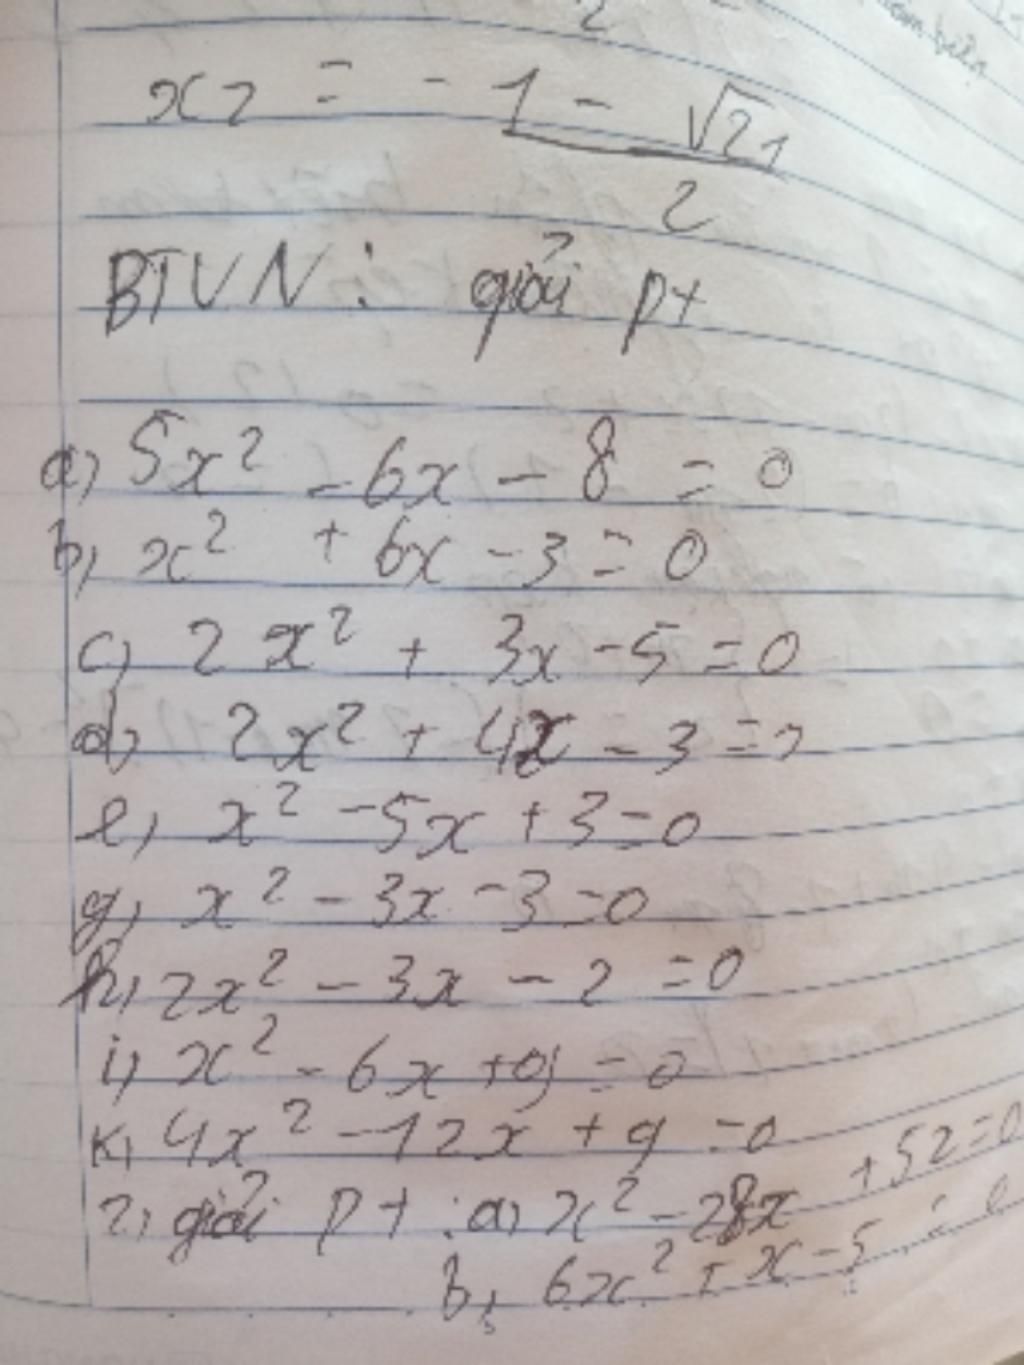 x2 = -1 - √21
2
BTVN : giải pt
a, 5x² - 6x - 8 = 0
b, x² + 6x - 3 = 0
c, 2x² + 3x - 5 = 0
d, 2x² + 4x - 3 = 0
e, x² - 5x + 3 = 0
g, x² - 3x - 3 = 0
h, 2x² - 3x - 2 = 0
i, x² - 6x + 9 = 0
k, 4x² - 12x + 9 = 0
2, giải pt : a, x² - 28x + 52 = 0
b, 6x² + x - 5 = 0